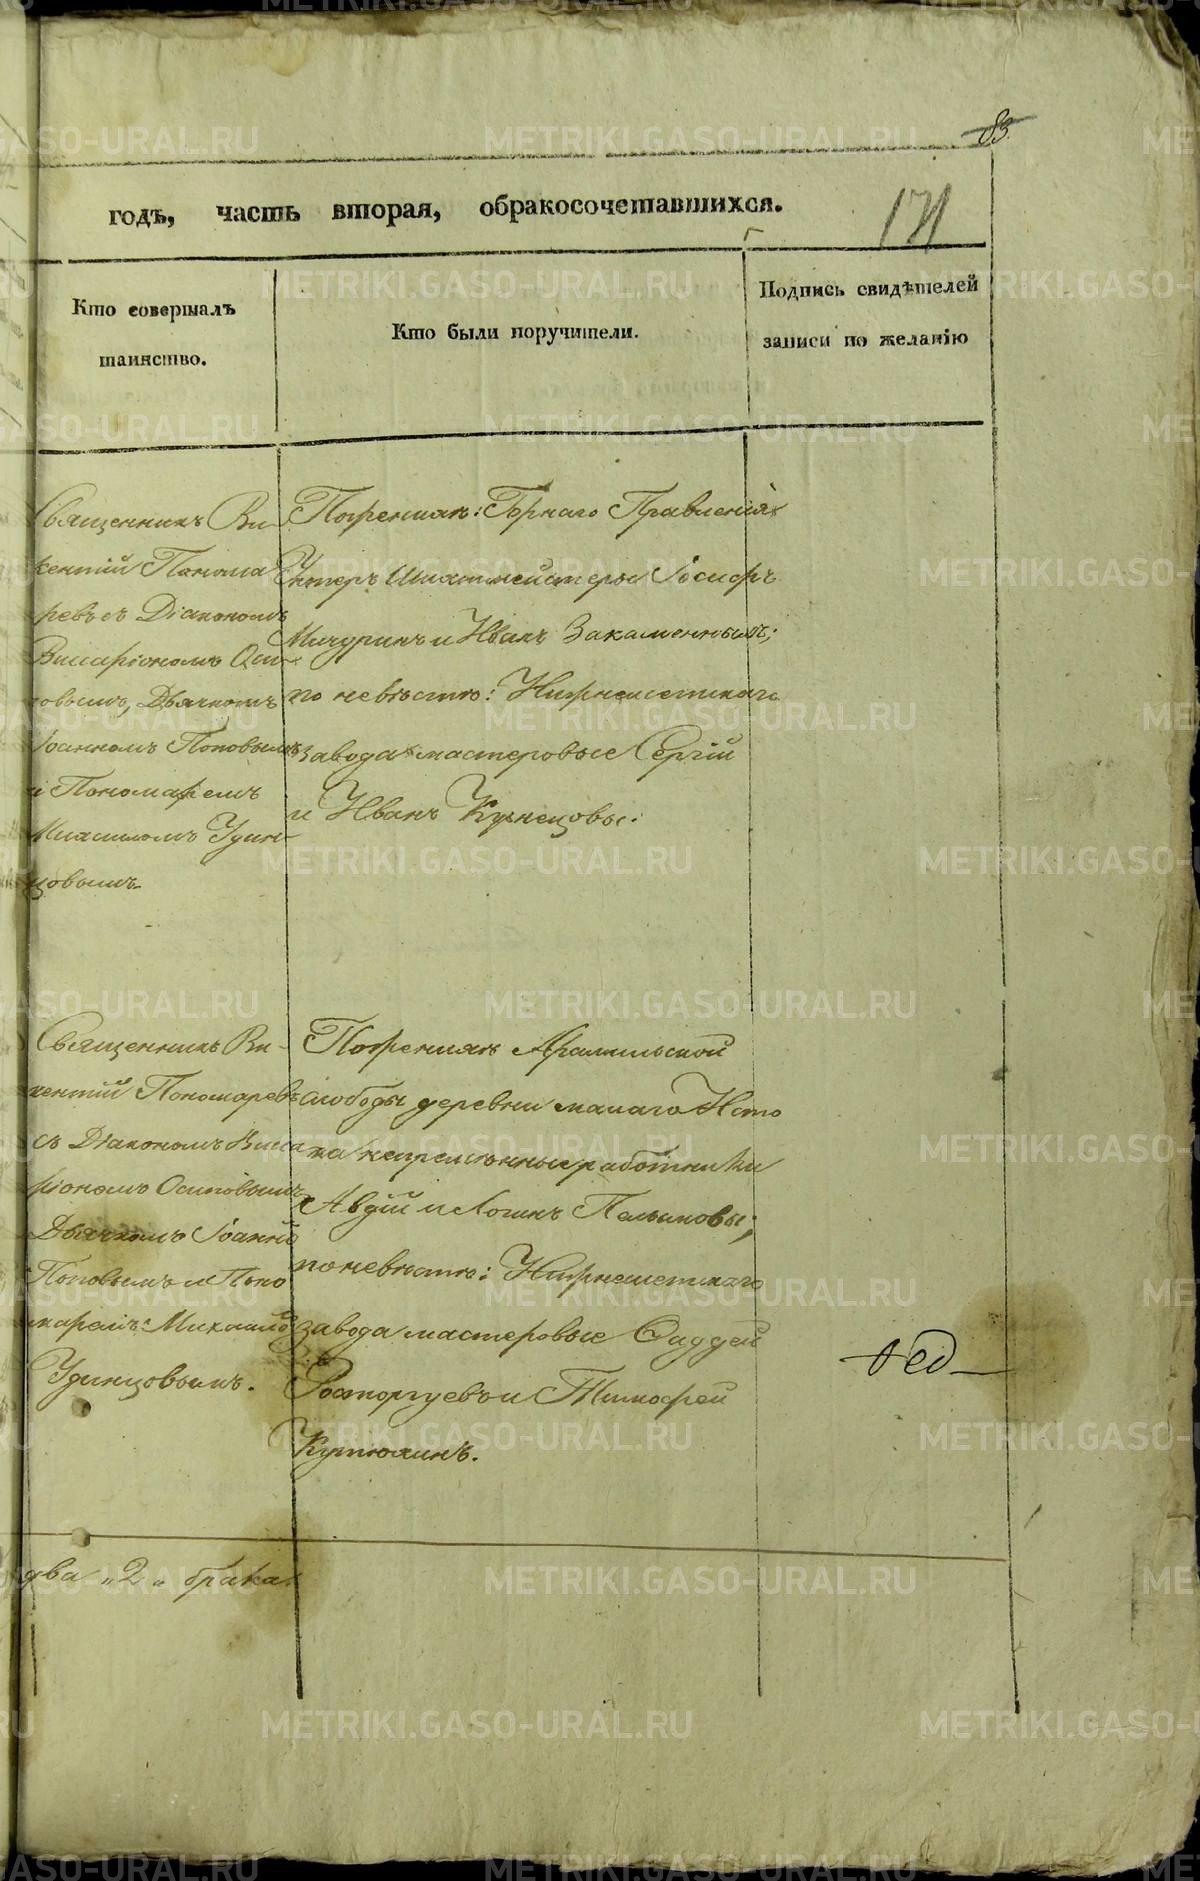 83
годъ, часть вторая, обракосочетавшихся.
171
Кто совершалъ
таинство.
Кто были поручители.
Подпись свидѣтелей
записи по желанію
Священникъ Ви-
кентій Понома
ревъ съ Діакономъ
Висаріономъ Оси-
повымъ, Дьячкомъ
Іоанномъ Поповымъ
и Пономаремъ
Михаиломъ Удин-
цовымъ.
По женихѣ: Горнаго Правленія
Унтеръ Шихтмейстеры Іосифъ
Мичуринъ и Иванъ Закаменныхъ;
по невѣстѣ: Нижнеисетскаго
завода мастеровые Сергій
и Иванъ Кузнецовы.
Священникъ Ви-
кентій Пономаревъ
съ Діакономъ Висса
ріономъ Осиповымъ
Дьячкомъ Іоанно
Поповымъ и Поно
маремъ Михаило
Удинцовымъ.
По женихѣ Арамильской
слободы деревни малаго Исто
ка непремѣнные работники
Авдій и Логинъ Пальниковы;
по невѣстѣ: Нижнеисетскаго
завода мастеровые Фаддей
Расторгуевъ и Тимофей
Кутюхинъ.
два „2„ брака.